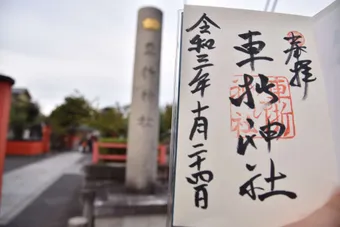 奉拝
車折神社
令和三年十月二十四日